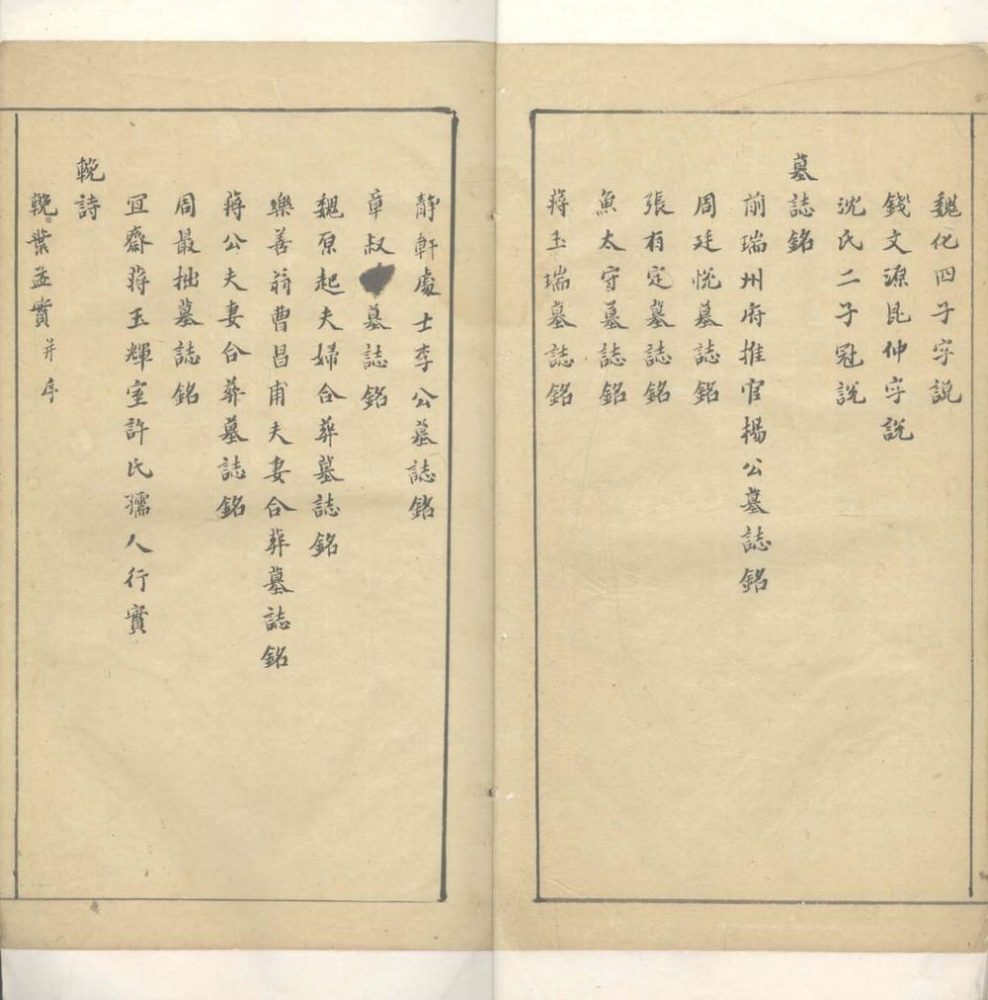 魏化四子字説
錢文源昆仲字説
沈氏二子冠説
墓誌銘
前瑞州府推官楊公墓誌銘
周廷悦墓誌銘
張有定墓誌銘
魚太守墓誌銘
蔣玉瑞墓誌銘
靜軒處士李公墓誌銘
章叔墓誌銘
魏原起夫婦合葬墓誌銘
樂善翁曹昌甫夫妻合葬墓誌銘
蔣公夫妻合葬墓誌銘
周最拙墓誌銘
宜齋蔣玉輝室許氏孺人行實
輓詩
輓葉孟實并序